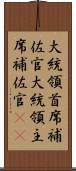 大統領首席補
佐官大統領主
席補佐官